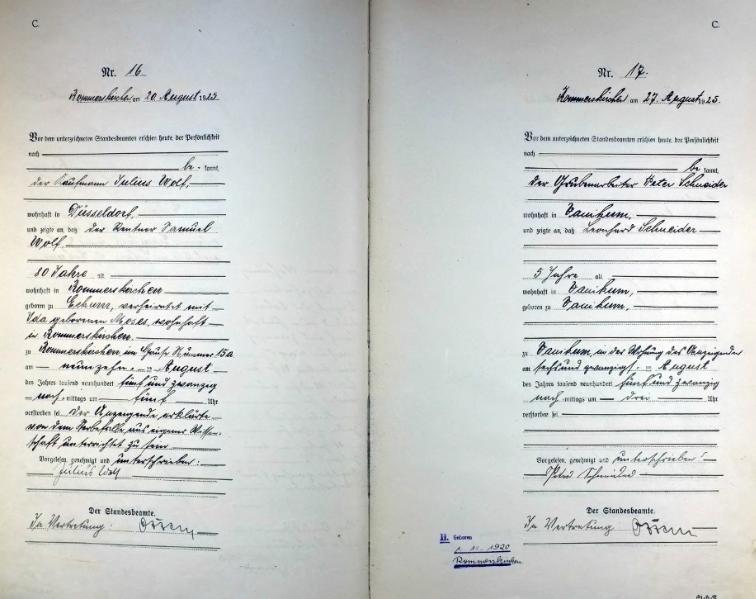 C.
Nr. 16.
Rommerskirchen am 20. August 1925
Vor dem unterzeichneten Standesbeamten erschien heute, der Persönlichkeit
nach
be- kannt,
der Kaufmann Julius Wolf,
wohnhaft in Düsseldorf,
und zeigte an, daß der Rentner Samuel
Wolf,
80 Jahre alt
wohnhaft in Rommerskirchen
geboren zu verheiratet mit
Ida geborenen Moses, wohnhaft
in Rommerskirchen
zu Rommerskirchen im Hause Nummer 15a
am neunzehn- August
des Jahres tausend neunhundert fünf und zwanzig
nach mittags um fünf Uhr
verstorben sei. Der Anzeigende erklärte
von dem Sterbefalle aus eigener Wissen-
schaft unterrichtet zu sein
Vorgelesen, genehmigt und unterschrieben:
Julius Wolf
Der Standesbeamte.
In Vertretung:
C.
Nr. 17.
Rommerskirchen am 27. August 1925.
Vor dem unterzeichneten Standesbeamten erschien heute, der Persönlichkeit
nach
be kannt,
der Grubenarbeiter Peter Schneider
wohnhaft in Vanikum,
und zeigte an, daß Leonhard Schneider
5 Jahre alt
wohnhaft in Vanikum,
geboren zu Vanikum,
zu Vanikum, in der Wohnung des Anzeigenden
am sechs und zwanzigst- August
des Jahres tausend neunhundert fünf und zwanzig
nach mittags um drei Uhr
verstorben sei.
Vorgelesen, genehmigt und unterschrieben:
Peter Schneider
Der Standesbeamte.
In Vertretung
Geboren
1920
Rommerskirchen